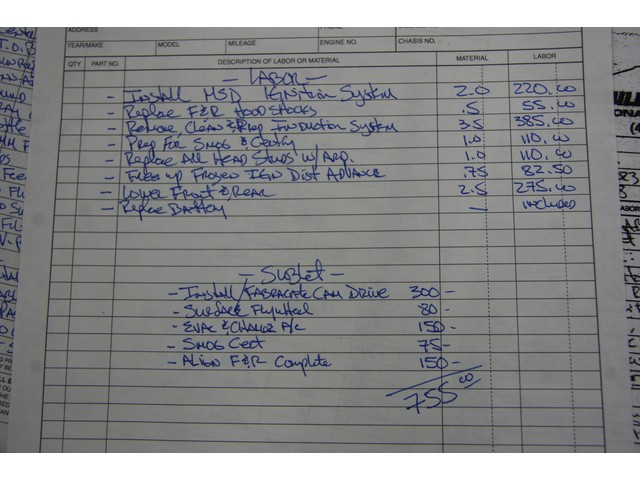 ADDRESS
YEAR/MAKE MODEL MILEAGE ENGINE NO. CHASIS NO.
QTY PART NO. DESCRIPTION OF LABOR OR MATERIAL MATERIAL LABOR
- LABOR -
- Install MSD IGNition System 2.0 220.00
- Replace F&R Hood Shocks .5 55.00
- Remove, Clean & Prep Induction System 3.5 385.00
- Prep For Smog & Certify 1.0 110.00
- Replace All Head Studs w/ Arp. 1.0 110.00
- Free up Frozen IGN Dist Advance .75 82.50
- Lower Front & Rear 2.5 275.00
- Replace Battery — included
- Sublet -
- Install/Fabracate Cam Drive 300-
- Surface Flywheel 80-
- Evac & Charge A/C 150-
- Smog Cert 75-
- Align F&R Complete 150-
755.00